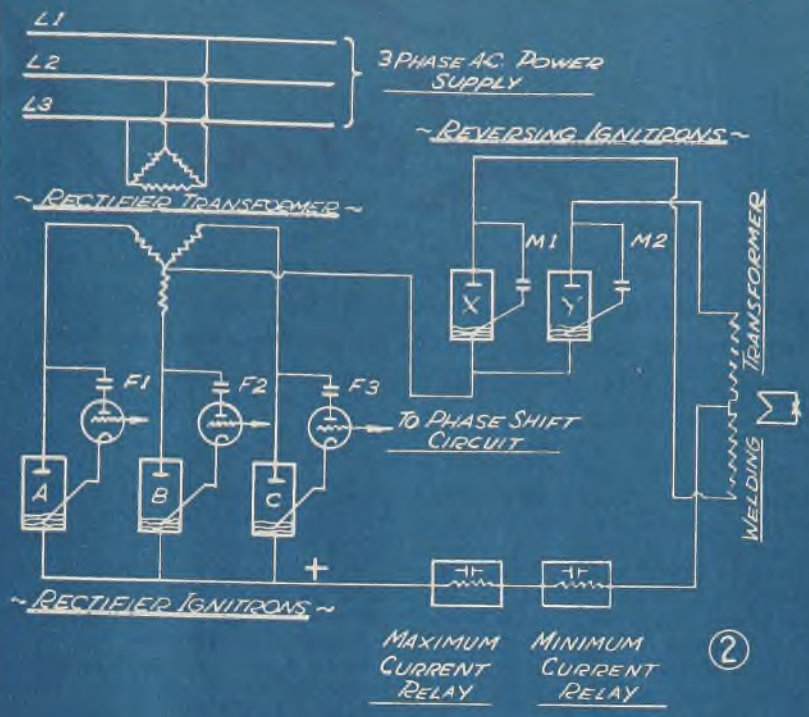 L1
L2
L3
3 PHASE A.C. POWER
SUPPLY
~ REVERSING IGNITRONS ~
~ RECTIFIER TRANSFORMER ~
M1
M2
X
Y
WELDING TRANSFORMER
F1
F2
F3
TO PHASE SHIFT
CIRCUIT
A
B
C
+
~ RECTIFIER IGNITRONS ~
MAXIMUM
CURRENT
RELAY
MINIMUM
CURRENT
RELAY
2